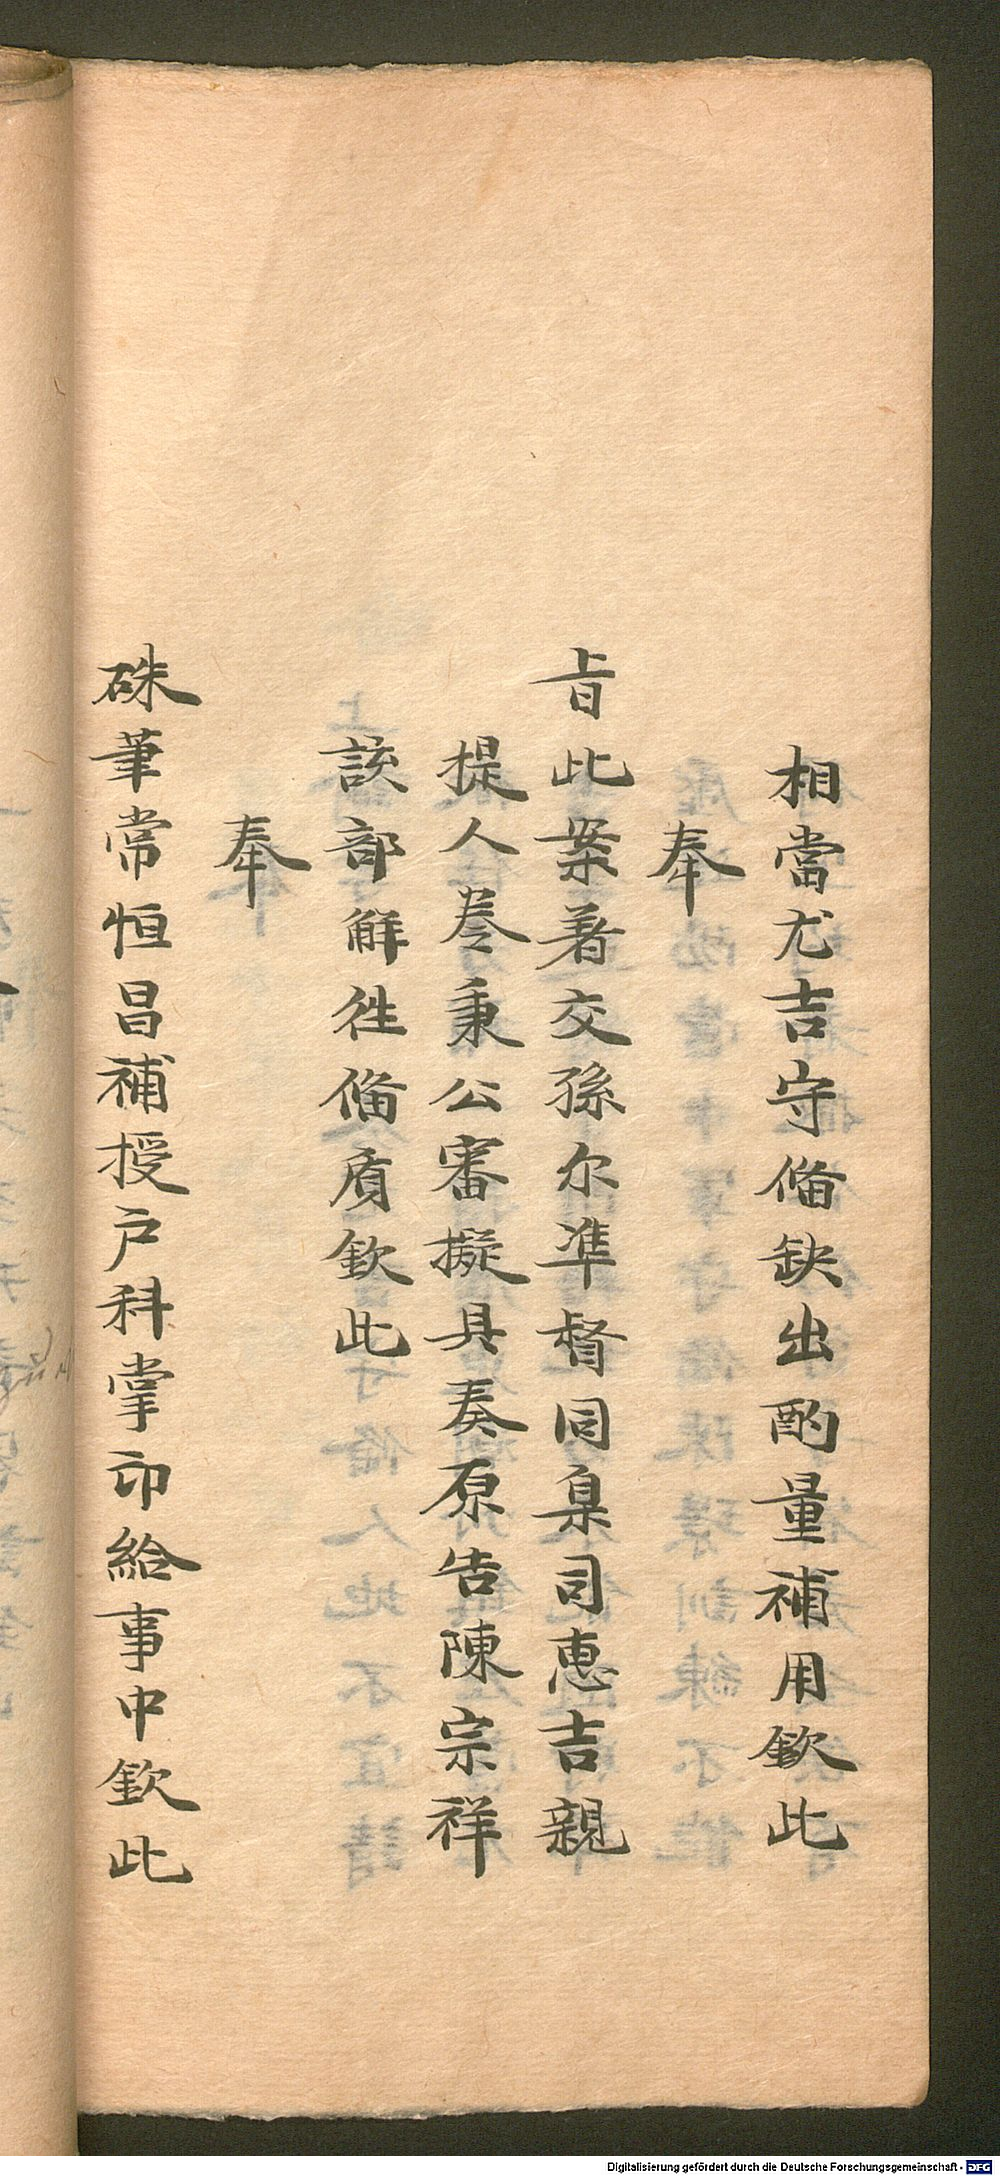 相當尤吉守俻缺出酌量補用欽此
奉
旨此案著交孫尔凖督同臬司惠吉親
提人卷秉公審擬具奏原告陳宗祥
該部解徃俻質欽此
奉
硃筆常恒昌補授户科掌印給事中欽此
Digitalisierung gefördert durch die Deutsche Forschungsgemeinschaft - DFG